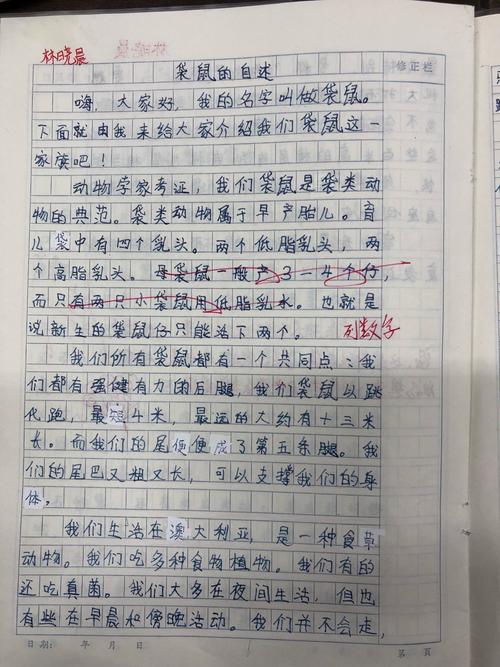 林晓晨
袋鼠的自述
修正栏
嗨,大家好,我的名字叫做袋鼠。
下面就由我来给大家介绍我们袋鼠这一
家族吧!
动物学家考证,我们袋鼠是袋类动
物的典范。袋类动物属于早产胎儿。育
儿袋中有四个乳头。两个低脂乳头,两
个高脂乳头。母袋鼠一般产3-4个仔,
而只有两只小袋鼠用低脂乳水。也就是
说新生的袋鼠仔只能活下两个。
列数字
我们所有袋鼠都有一个共同点:我
们都有强健有力的后腿,我们袋鼠以跳
代跑,最短4米,最远的大约有十三米
长。而我们的尾便便成了第五条腿。我
们的尾巴又粗又长,可以支撑我们的身
体,
我们生活在澳大利亚,是一种食草
动物。我们吃多种食物植物。我们有的
还吃真菌。我们大多在夜间生活,但也
有些在早晨和傍晚活动。我们并不会走,
日期: 年 月 日 第 页